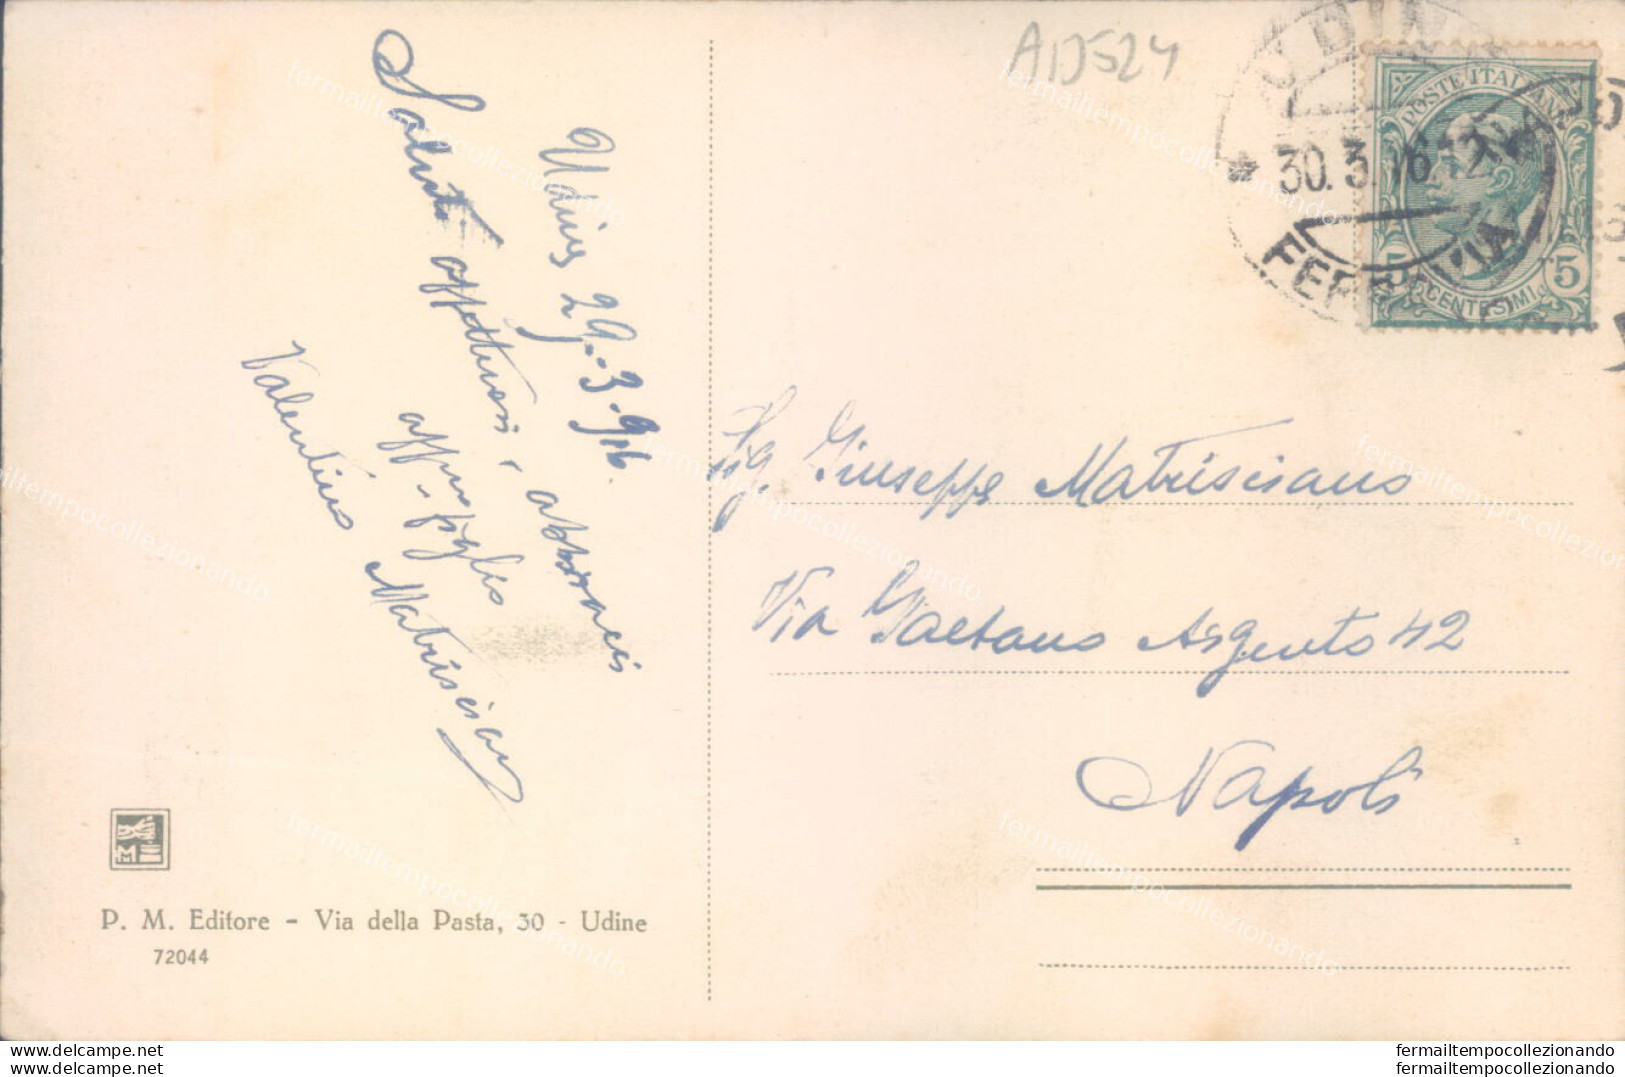 AD524
UDIN
* 30.3.16.12
FERR VIA
POSTE ITALIANE
5 CENTESIMI 5
Udine 29..3.916.
Saluti affettuosi e abbracci
aff. figlio
Valentino Matrisciano
Sig. Giuseppe Matrisciano
Via Gaetano Argento 42
Napoli
P. M. Editore - Via della Pasta, 30 - Udine
72044
fermailtempocollezionando
fermailtempocollezionando
fermailtempocollezionando
fermailtempocollezionando